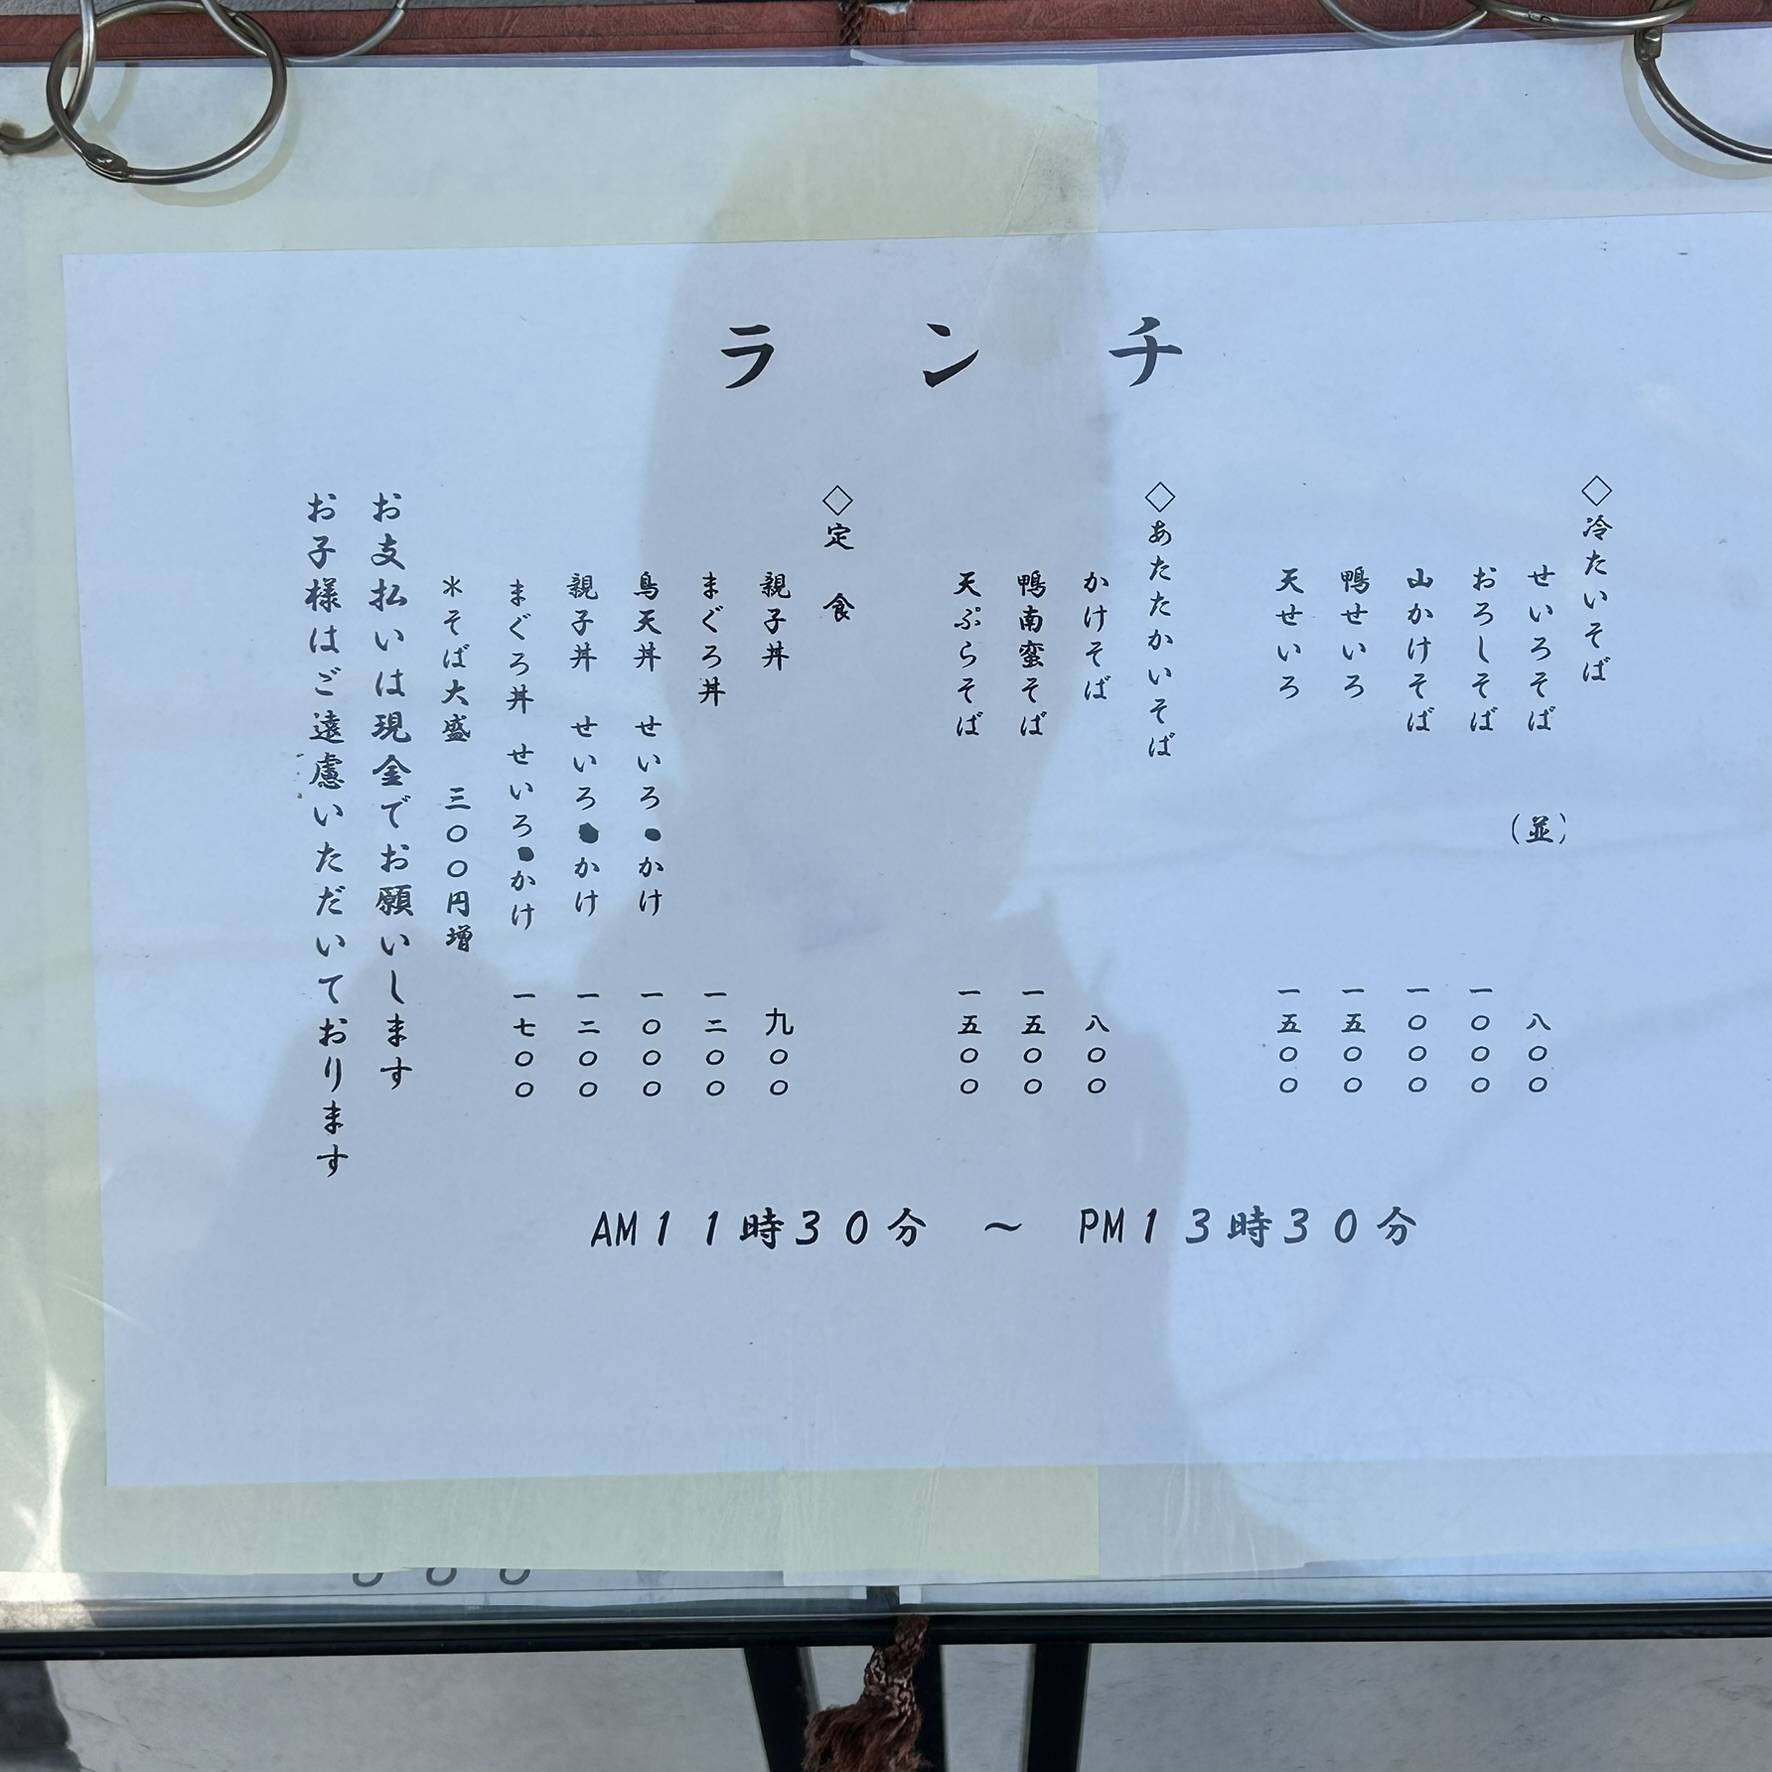 ランチ
◇冷たいそば
せいろそば （並） 八〇〇
おろしそば 一〇〇〇
山かけそば 一〇〇〇
鴨せいろ 一五〇〇
天せいろ 一五〇〇
◇あたたかいそば
かけそば 八〇〇
鴨南蛮そば 一五〇〇
天ぷらそば 一五〇〇
◇定食
親子丼 九〇〇
まぐろ丼 一二〇〇
鳥天丼 せいろ●かけ 一〇〇〇
親子丼 せいろ●かけ 一二〇〇
まぐろ丼 せいろ●かけ 一七〇〇
＊そば大盛 三〇〇円増
お支払いは現金でお願いします
お子様はご遠慮いただいております
AM11時30分 ～ PM13時30分